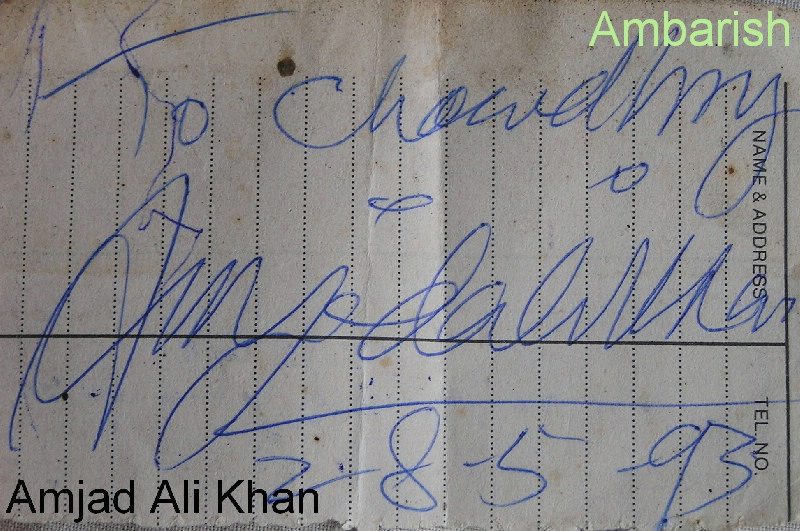 Ambarish
To Chowdhry
Amjad Ali Khan
28-5-93
NAME & ADDRESS
TEL. NO.
Amjad Ali Khan